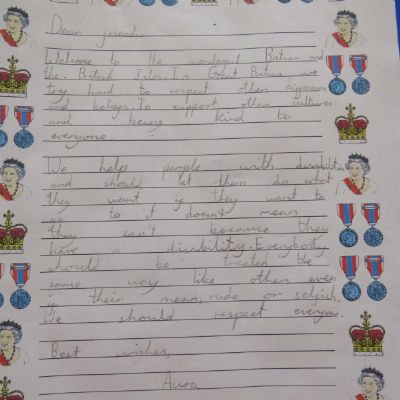 Dear friend,
Welcome to the wonderful Britian and
the British Isles. In Great Britian we
try hard to respect other
and beliefs. To support other cultures
and being kind to
everyone.
We help people with disabilities
and should let them do what
they want if they want to
to it doesn't mean
they can't because they
have a disability. Everybody
should be treated the
same way like other even
if their mean, rude or selfish.
We should respect everyone.
Best wishes,
Aura